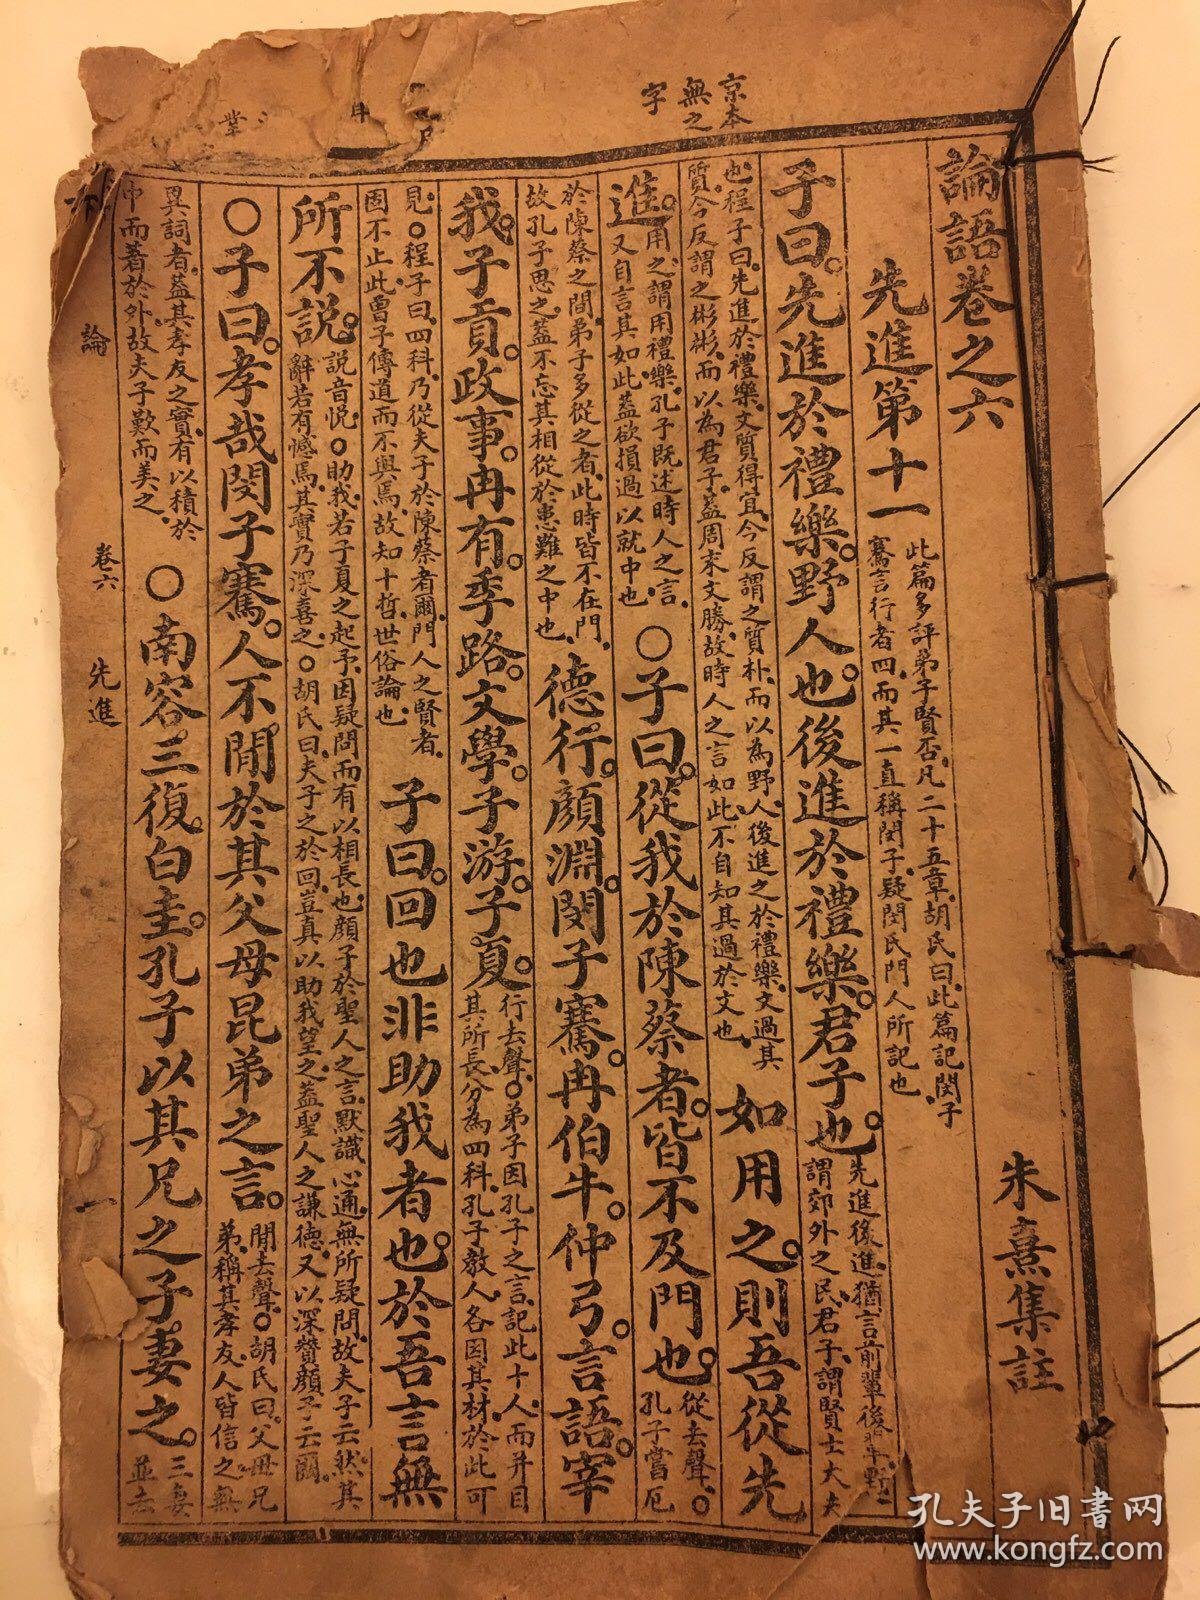 京本
無之
字
論語卷之六
朱熹集註
先進第十一
此篇多評弟子賢否凡二十五章胡氏曰此篇記閔子
騫言行者四而其一直稱閔子疑閔氏門人所記也
子曰先進於禮樂野人也後進於禮樂君子也
先進後進猶言前輩後輩野人
謂郊外之民君子謂賢士大夫
也程子曰先進於禮樂文質得宜今反謂之質朴而以為野人後進之於禮樂文過其
質今反謂之彬彬而以為君子蓋周末文勝故時人之言如此不自知其過於文也
如用之則吾從先
進
用之謂用禮樂孔子既述時人之言
又自言其如此蓋欲損過以就中也
○子曰從我於陳蔡者皆不及門也
從去聲○
孔子嘗厄
於陳蔡之間弟子多從之者此時皆不在門
故孔子思之蓋不忘其相從於患難之中也
德行顏淵閔子騫冉伯牛仲弓言語宰
我子貢政事冉有季路文學子游子夏
行去聲○弟子因孔子之言記此十人而并目
其所長分為四科孔子教人各因其材於此可
見○程子曰四科乃從夫子於陳蔡者爾門人之賢者
固不止此曾子傳道而不與焉故知十哲世俗論也
子曰回也非助我者也於吾言無
所不說
說音悅○助我若子夏之起予因疑問而有以相長也顏子於聖人之言默識心通無所疑問故夫子云然其
辭若有憾焉其實乃深喜之○胡氏曰夫子之於回豈真以助我望之蓋聖人之謙德又以深贊顏子云爾
○子曰孝哉閔子騫人不間於其父母昆弟之言
間去聲○胡氏曰父母兄
弟稱其孝友人皆信之無
異詞者蓋其孝友之實有以積於
中而著於外故夫子歎而美之
○南容三復白圭孔子以其兄之子妻之
三妻
並去
論
卷六
先進
一
孔夫子旧书网
www.kongfz.com